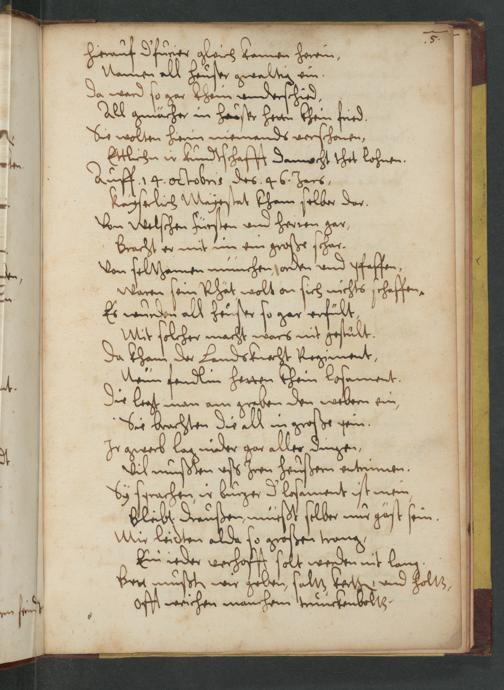 .5.
hierauf d'furier gleich kamen herein,
Namen all heüser gwaltig ein.
Da ward so gar khein underschied,
All gmächer in heüser hetten khein frid.
Sie wolten hierin niemands verschonen,
Ettlichen ir kundtschafft dannocht thet lohnen.
Auff 14. octobris des 46. Jars,
Kayserlich Mayestat kham selber dar.
Von Welschen fürsten und herren gar,
Bracht er mit im ein große schar.
Von seltzamen münchen, orden und pfaffen,
Waren sein Rhät wolt on sich nichts schaffen.
Es wurden all heüser so gar erfült,
Mit solcher macht wars nit gestült.
Da kham der Landsknecht Regiment,
Neün fendlin hetten khein losament.
Die legt man am graben den webern ein,
Sie brachten die all in große pein.
Ir gwerb lag nider gar aller dingen,
Vil mußten uß Iren heüßern entrinnen.
Sÿ sprachen, ir burger d'losament ist mein,
Bleibt draußen, mießt selber nur gäst sein.
Mir leidten alda so großen trang,
Ein ieder verhofft solt werden nit lang.
Bett mußt wir geben, saltz kertz, und holtz,
Offt weichen manchem trunckenboltz.